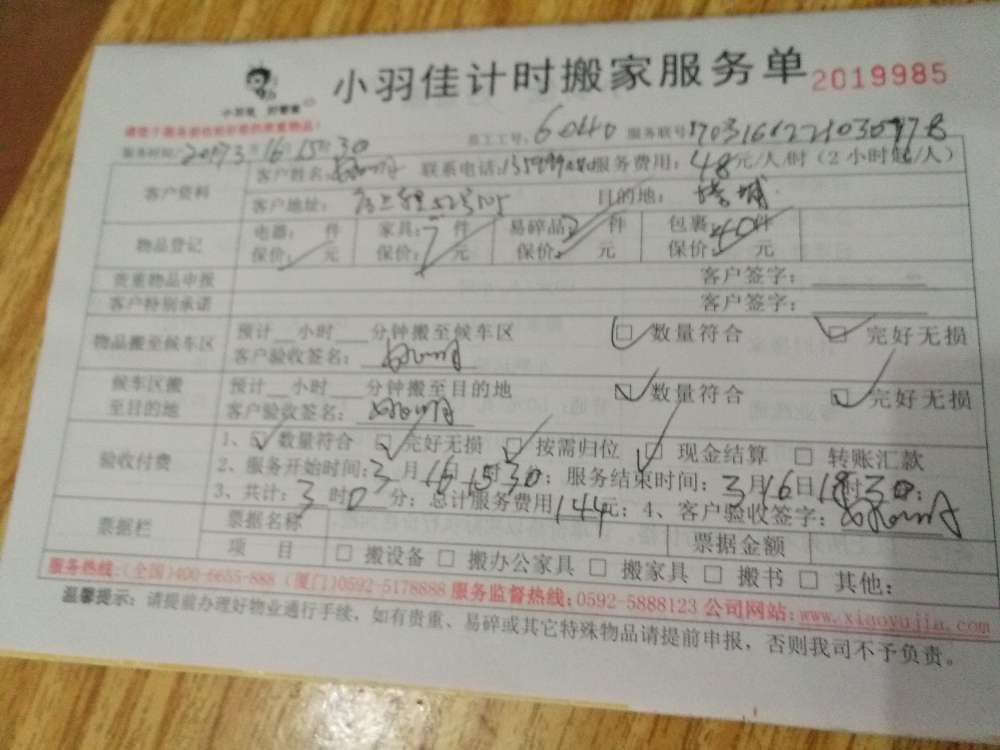 小羽佳计时搬家服务单 2019985
小羽佳 好管家
员工工号: 6040 服务联号:
服务时间: 3 16 15时30
客户资料 客户姓名: 联系电话: 服务费用: 48元/人/时 (2小时起/人)
客户地址: 目的地:
物品登记 电器: 件 家具: 7件 易碎品: 2件 包裹: 40件
保价: 元 保价: 元 保价: 元 保价: 元
贵重物品申报 客户签字:
客户特别承诺 客户签字:
物品搬至候车区 预计__小时__分钟搬至候车区 数量符合 完好无损
客户验收签名:
候车区搬至目的地 预计__小时__分钟搬至目的地 数量符合 完好无损
客户验收签名:
验收付费 1、数量符合 完好无损 按需归位 现金结算 转账汇款
2、服务开始时间: 3月16日15时30; 服务结束时间: 3月16日18时30;
3、共计: 3时0分; 总计服务费用144元; 4、客户验收签字:
票据栏 票据名称 票据金额
项 目 搬设备 搬办公家具 搬家具 搬书 其他:
服务热线:(全国)400-6655-888 (厦门)0592-5178888 服务监督热线:0592-5888123 公司网站:www.xiaoyujia.com
温馨提示: 请提前办理好物业通行手续, 如有贵重、易碎或其它特殊物品请提前申报, 否则我司不予负责。